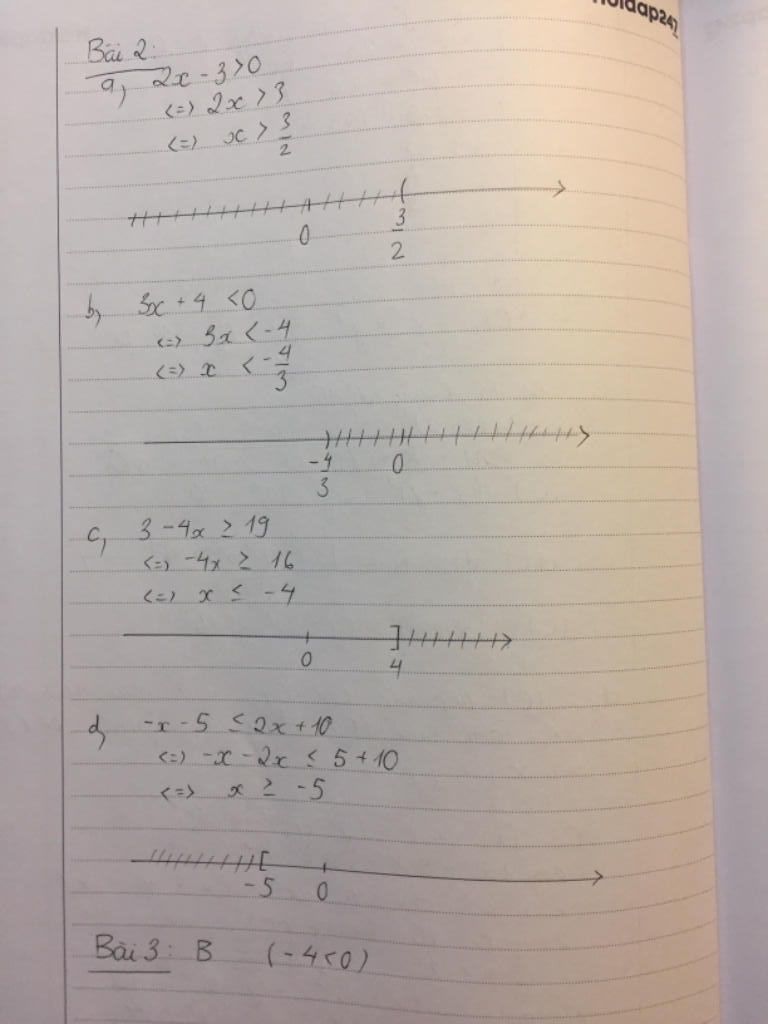 Hoidap247
Bài 2:
a, 2x - 3 > 0
<=> 2x > 3
<=> x > 3/2
0 3/2
b, 3x + 4 < 0
<=> 3x < -4
<=> x < -4/3
-4/3 0
c, 3 - 4x ≥ 19
<=> -4x ≥ 16
<=> x ≤ -4
0 4
d, -x - 5 ≤ 2x + 10
<=> -x - 2x ≤ 5 + 10
<=> x ≥ -5
-5 0
Bài 3: B (-4<0)